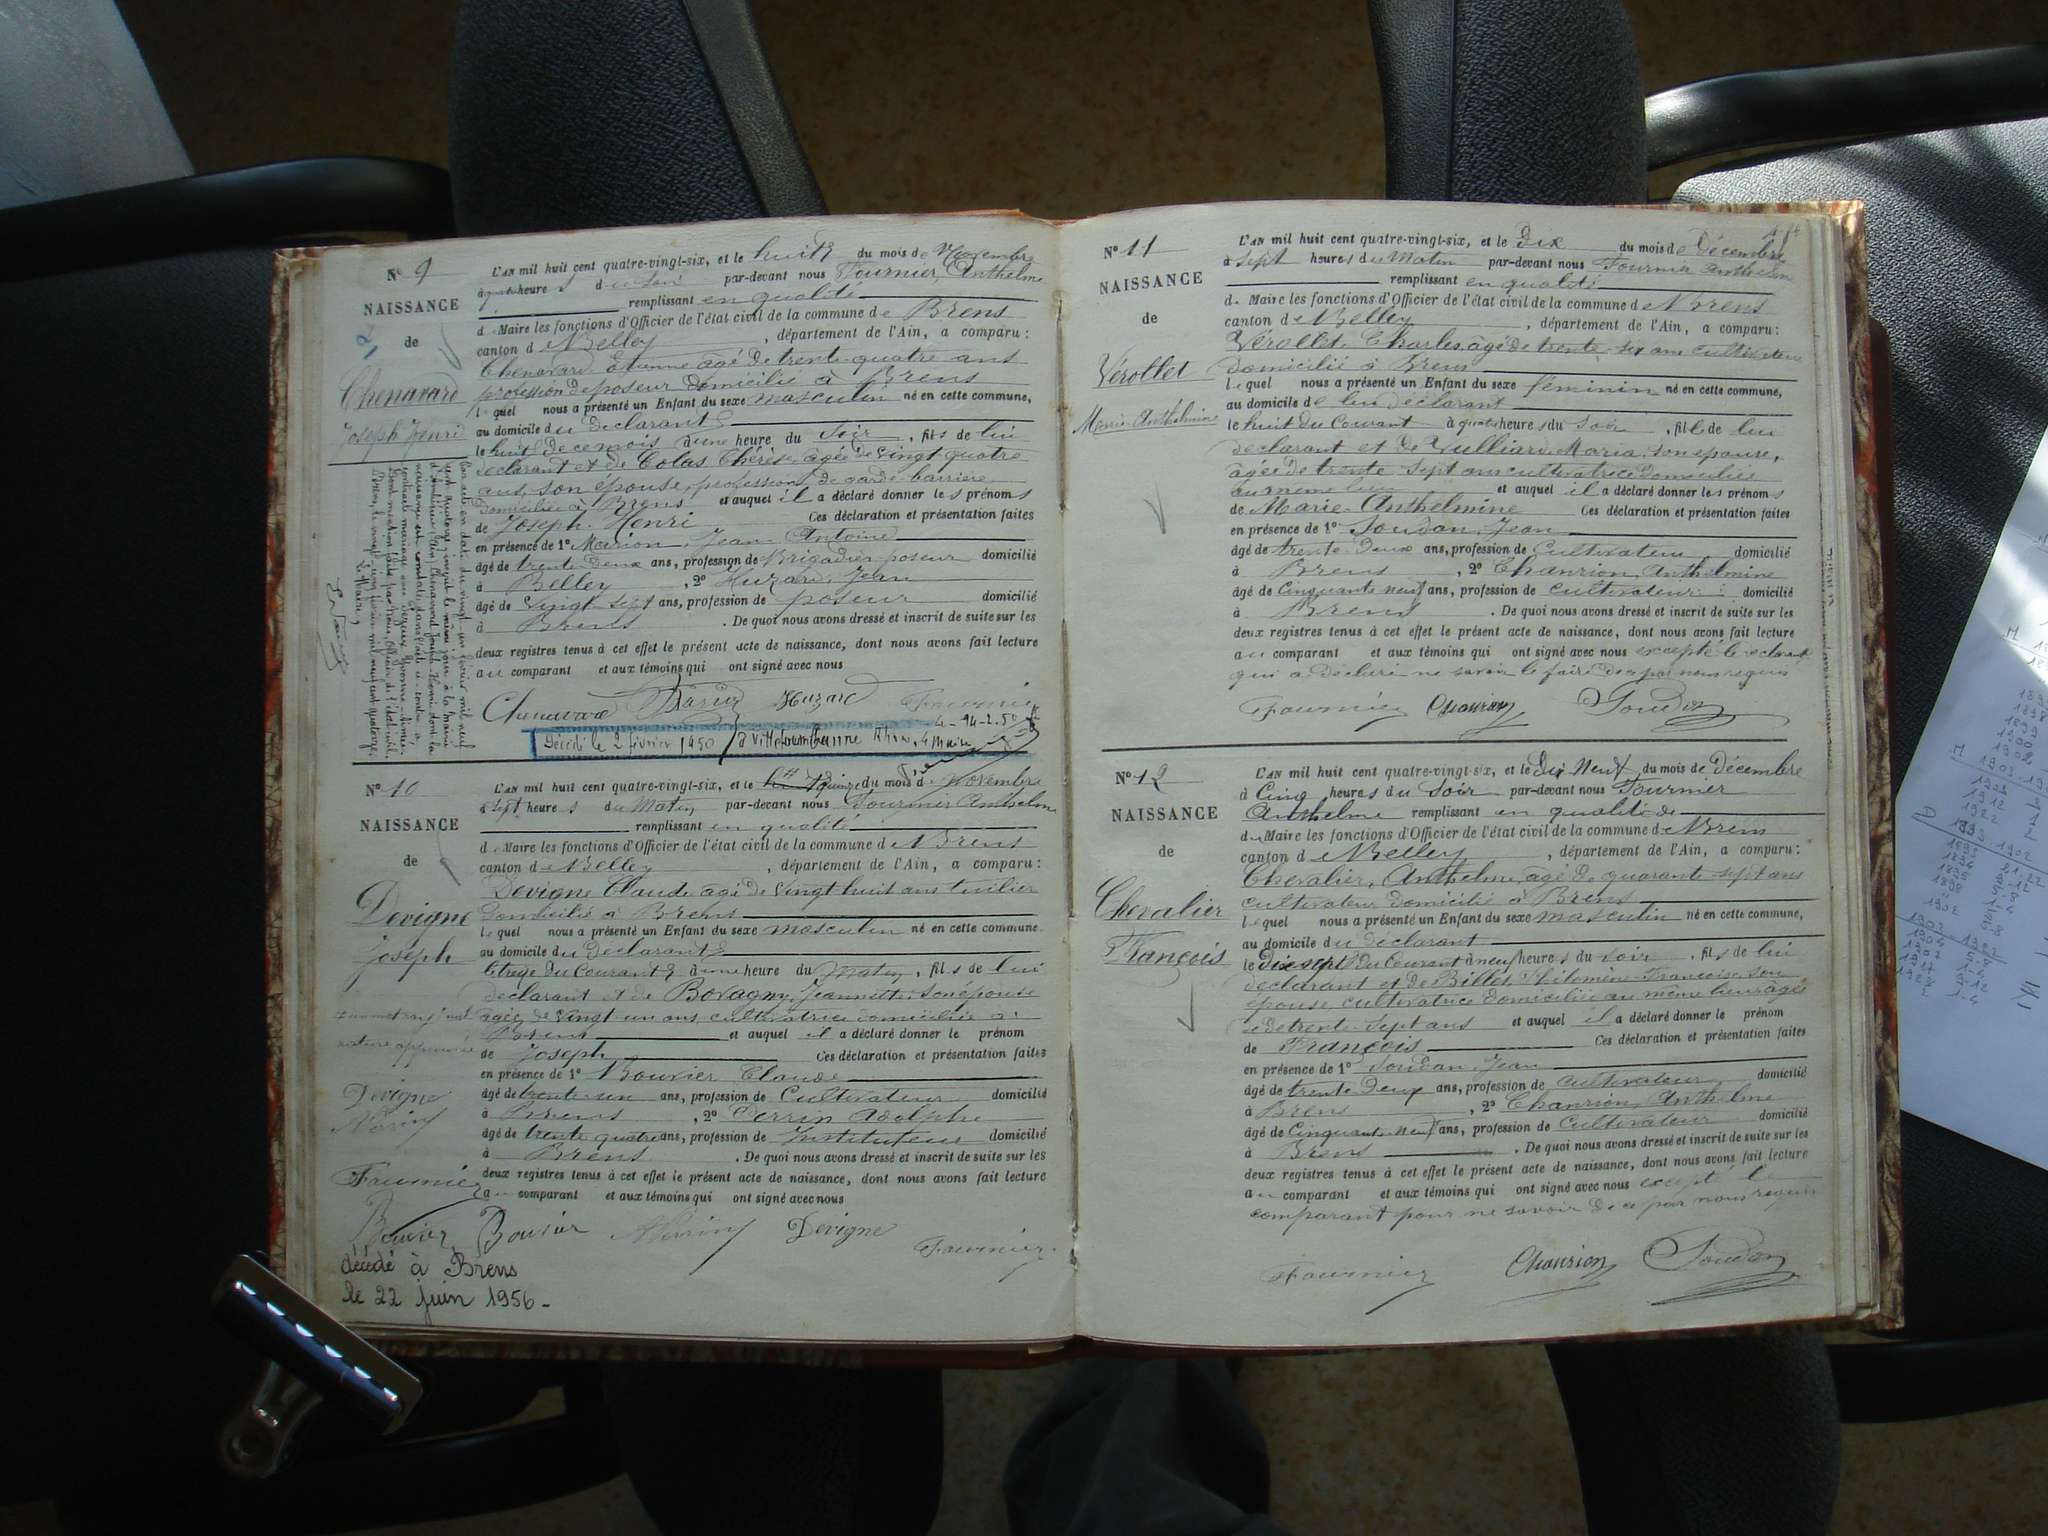 N° 9
NAISSANCE
de
Chenavard
Joseph Henri
L'AN mil huit cent quatre-vingt-six, et le huit du mois de Novembre
à heures du soir par-devant nous Fournier, Anthelme
remplissant en qualité
de Maire les fonctions d'Officier de l'état civil de la commune de Brens
canton de Belley, département de l'Ain, a comparu :
Chenavard Etienne âgé de trente-quatre ans
profession de poseur domicilié à Brens
lequel nous a présenté un Enfant du sexe masculin né en cette commune,
au domicile du déclarant
le huit de ce mois à une heure du soir, fils de lui
déclarant et de Colas Thérèse, âgée de vingt quatre
ans, son épouse, profession de garde-barrière
domiciliée à Brens et auquel il a déclaré donner les prénoms
de Joseph Henri Ces déclaration et présentation faites
en présence de 1° Marion, Jean Antoine
âgé de trente deux ans, profession de Brigadier poseur domicilié
à Belley, 2° Huzard, Jean
âgé de vingt-sept ans, profession de poseur domicilié
à Brens. De quoi nous avons dressé et inscrit de suite sur les
deux registres tenus à cet effet le présent acte de naissance, dont nous avons fait lecture
au comparant et aux témoins qui ont signé avec nous
Chenavard Huzard Fournier
Décédé le 2 février 1950 à Villeurbanne Rhône
14-2-50
le Maire
N° 10
NAISSANCE
de
Devigne
Joseph
rature approuvée
Devigne
Perrin
Fournier
Bouvier
L'AN mil huit cent quatre-vingt-six, et le quinze du mois de Novembre
à sept heures du Matin par-devant nous Fournier Anthelme
remplissant en qualité
de Maire les fonctions d'Officier de l'état civil de la commune de Brens
canton de Belley, département de l'Ain, a comparu :
Devigne Claude âgé de vingt huit ans tuilier
domicilié à Brens
lequel nous a présenté un Enfant du sexe masculin né en cette commune
au domicile du déclarant
le treize du Courant à une heure du Matin, fils de lui
déclarant et de Bovagny, Jeannette, son épouse
âgée de vingt-un ans, cultivatrice domiciliée à
Brens et auquel il a déclaré donner le prénom
de Joseph Ces déclaration et présentation faites
en présence de 1° Bouvier Claude
âgé de trente-un ans, profession de Cultivateur domicilié
à Brens, 2° Perrin Adolphe
âgé de trente quatre ans, profession de Instituteur domicilié
à Brens. De quoi nous avons dressé et inscrit de suite sur les
deux registres tenus à cet effet le présent acte de naissance, dont nous avons fait lecture
au comparant et aux témoins qui ont signé avec nous
Bouvier Perrin Devigne Fournier
décédé à Brens
le 22 juin 1956-
N° 11
NAISSANCE
de
Vérollet
Marie-Anthelmine
L'AN mil huit cent quatre-vingt-six, et le Dix du mois de Décembre
à sept heures du Matin par-devant nous Fournier Anthelme
remplissant en qualité
de Maire les fonctions d'Officier de l'état civil de la commune de Brens
canton de Belley, département de l'Ain, a comparu :
Vérollet, Charles, âgé de trente-six ans cultivateur
domicilié à Brens
lequel nous a présenté un Enfant du sexe féminin né en cette commune,
au domicile de lui déclarant
le huit du Courant à quatre heures du Soir, fille de lui
déclarant et de Vulliard, Maria, son épouse,
âgée de trente-sept ans cultivatrice domiciliée
au même lieu et auquel il a déclaré donner les prénoms
de Marie-Anthelmine Ces déclaration et présentation faites
en présence de 1° Soudan, Jean
âgé de trente-deux ans, profession de Cultivateur domicilié
à Brens, 2° Chanrion, Anthelmine
âgé de Cinquante neuf ans, profession de cultivateur domicilié
à Brens. De quoi nous avons dressé et inscrit de suite sur les
deux registres tenus à cet effet le présent acte de naissance, dont nous avons fait lecture
au comparant et aux témoins qui ont signé avec nous excepté le déclarant
qui a déclaré ne savoir le faire de ce par nous requis
Fournier Chanrion Soudan
N° 12
NAISSANCE
de
Chevalier
François
L'AN mil huit cent quatre-vingt-six, et le Dix Neuf du mois de Décembre
à Cinq heures du Soir par-devant nous Fournier
Anthelme remplissant en qualité de
de Maire les fonctions d'Officier de l'état civil de la commune de Brens
canton de Belley, département de l'Ain, a comparu :
Chevalier, Anthelme, âgé de quarante-sept ans
cultivateur domicilié à Brens
lequel nous a présenté un Enfant du sexe masculin né en cette commune,
au domicile du déclarant
le dix sept du Courant à neuf heures du soir, fils de lui
déclarant et de Billet, Philomène-Françoise, son
épouse, cultivatrice domiciliée au même lieu, âgée
de trente-sept ans et auquel il a déclaré donner le prénom
de François Ces déclaration et présentation faites
en présence de 1° Soudan, Jean
âgé de trente Deux ans, profession de cultivateur domicilié
à Brens, 2° Chanrion, Anthelme
âgé de Cinquante-neuf ans, profession de Cultivateur domicilié
à Brens. De quoi nous avons dressé et inscrit de suite sur les
deux registres tenus à cet effet le présent acte de naissance, dont nous avons fait lecture
au comparant et aux témoins qui ont signé avec nous excepté le
comparant pour ne savoir de ce par nous requis
Fournier Chanrion Soudan